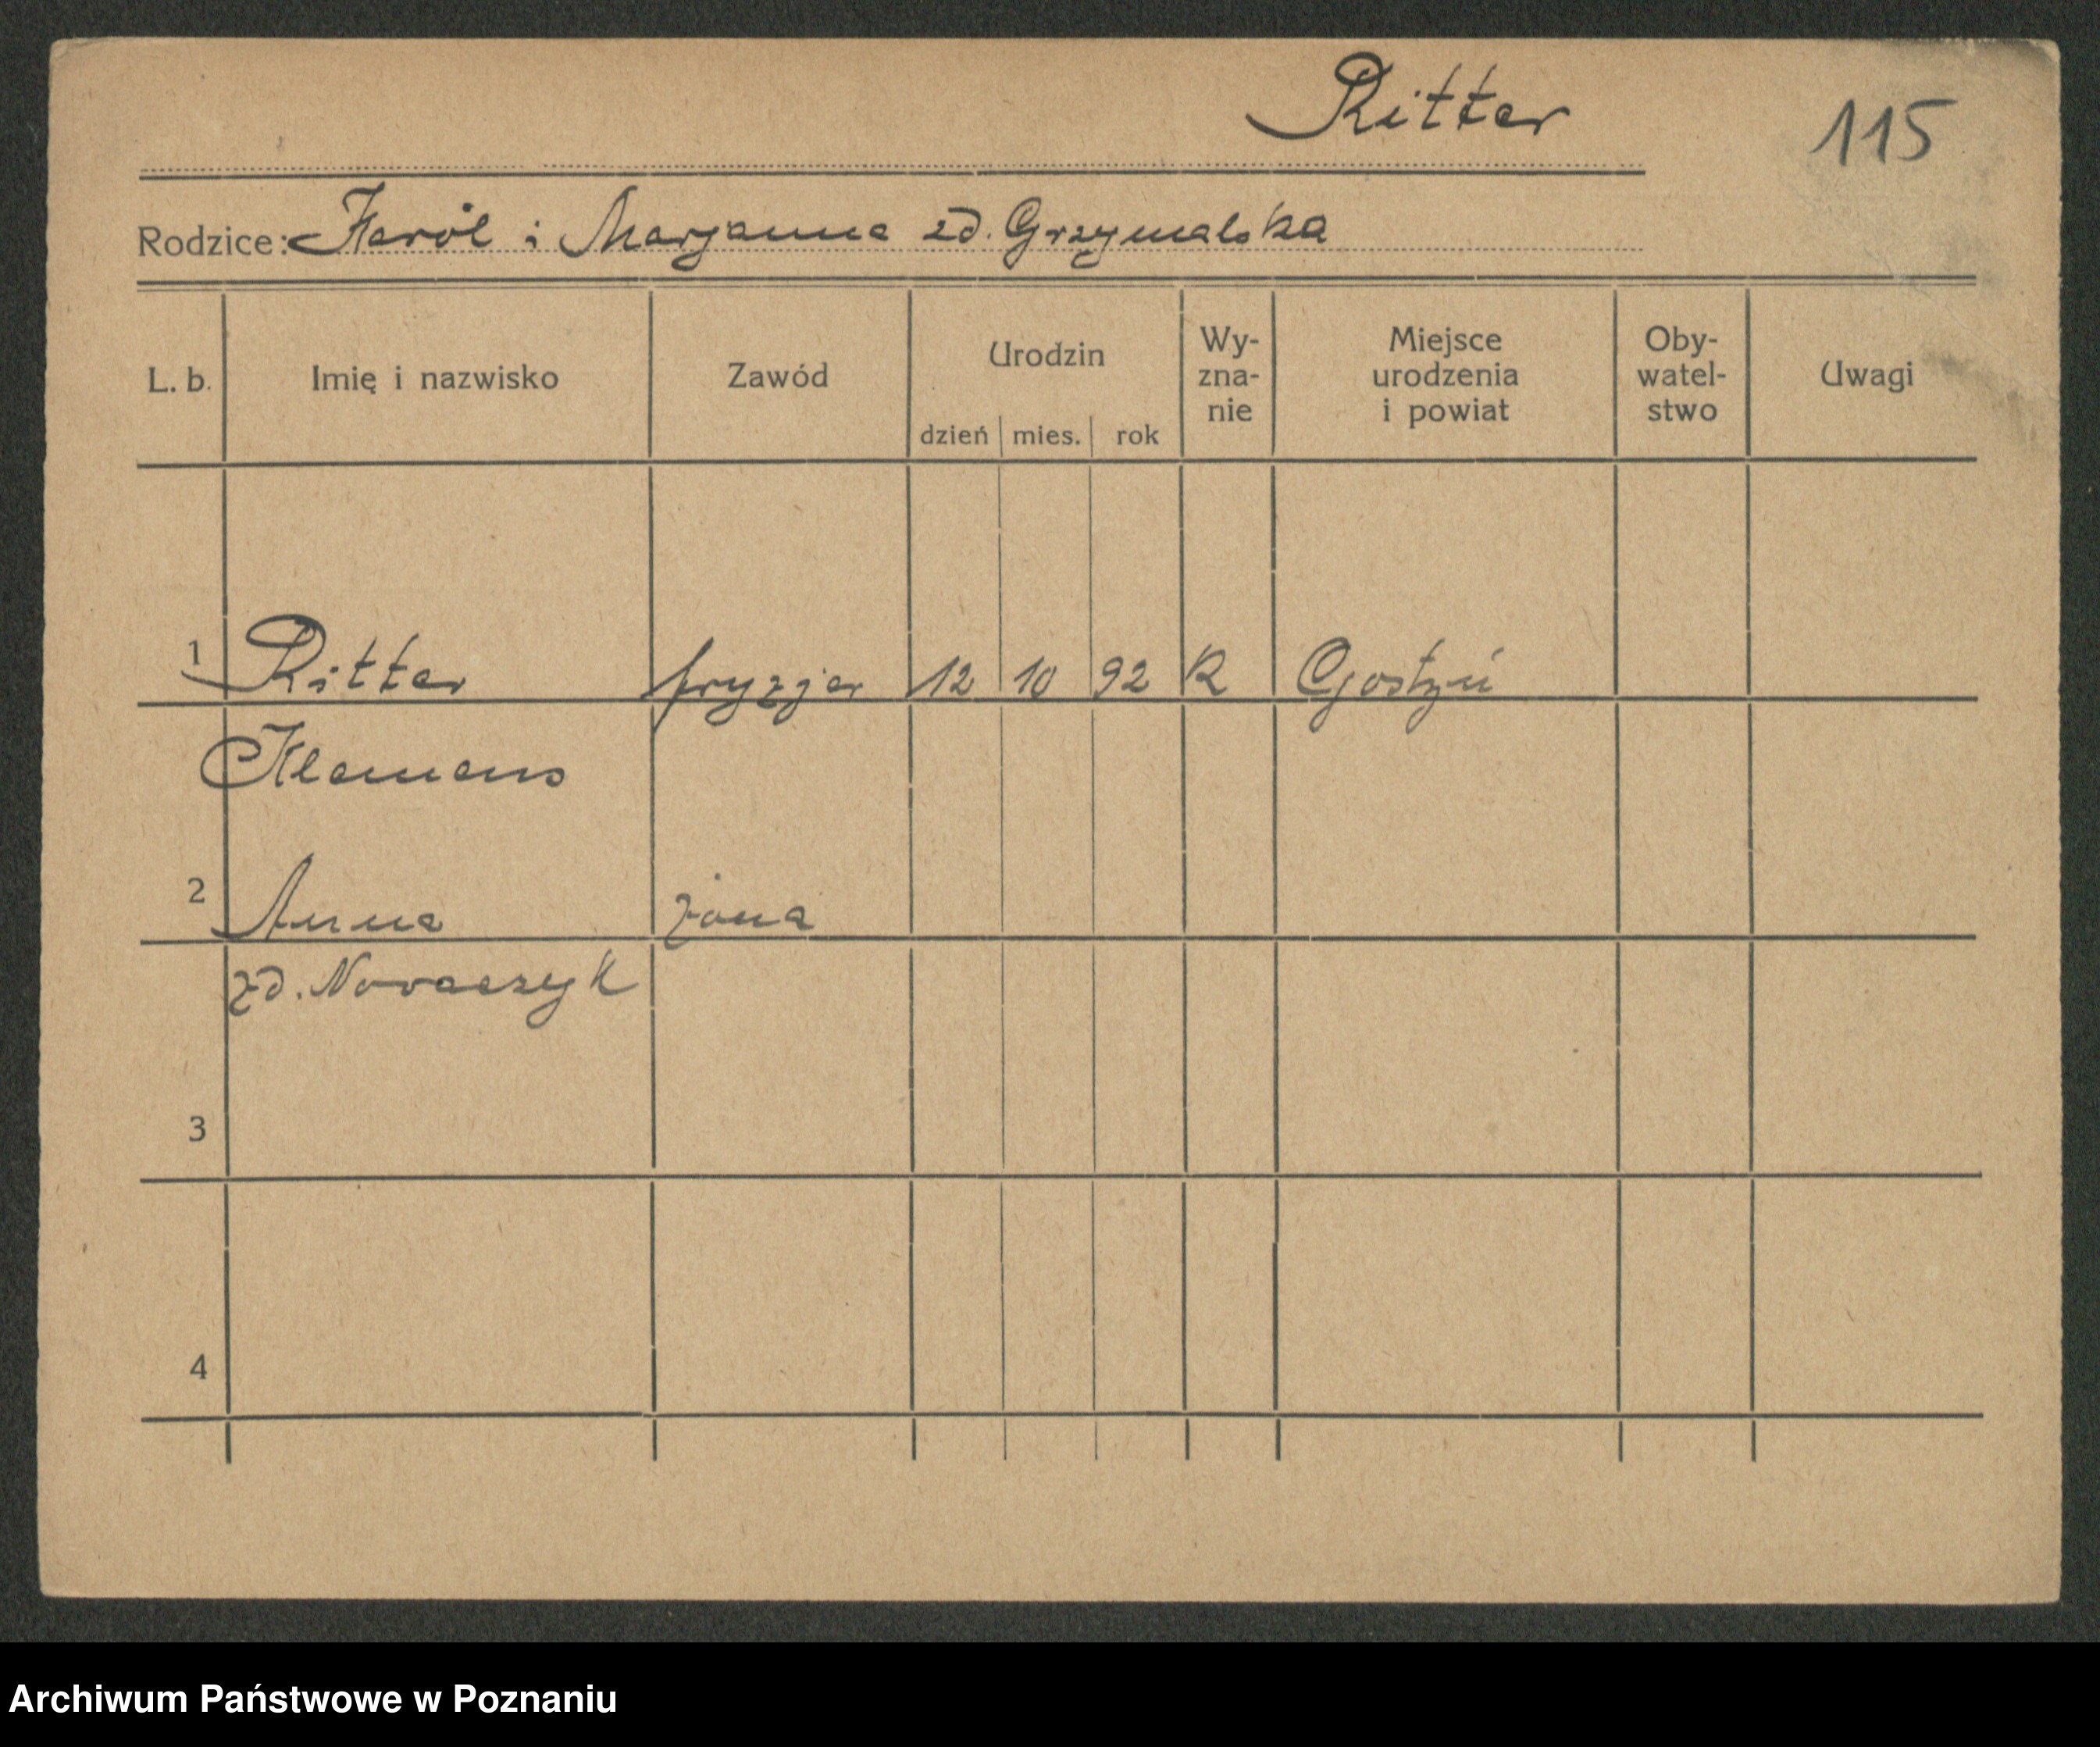 Ritter
115
Rodzice: Karól i Marjanna zd. Grzymalska
L. b. Imię i nazwisko Zawód Urodzin dzień mies. rok Wy-zna-nie Miejsce urodzenia i powiat Oby-watel-stwo Uwagi
1 Ritter fryzjer 12 10 92 R Gostyń
Klemens
2 Anna żona
zd. Nowaczyk
3
4
Archiwum Państwowe w Poznaniu